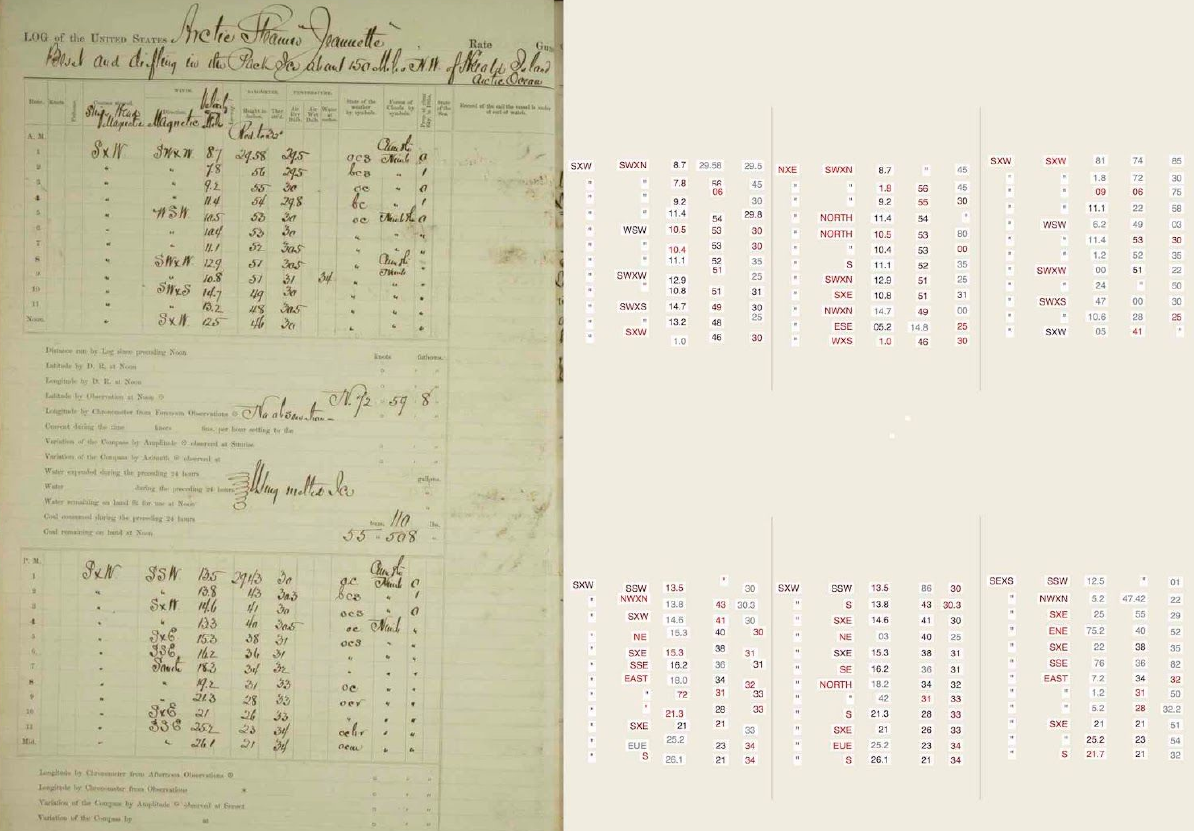 LOG of the UNITED STATES Arctic Steamer Jeannette Rate
Beset and drifting in the Pack Ice about 150 Miles N.W. of Herald Island
Arctic Ocean
WINDS.
Hour. Knots. Magnetic Magnetic Height in inches. State of the weather by symbols. Forms of Clouds by symbols.
A. M.
1 SxW SWxW 8.7 29.58 29.5 ocs 0
2 " " 7.8 56 29.5 bcs " 1
3 " " 9.2 55 30 oc " 0
4 " " 11.4 54 29.8 bc " 1
5 " WSW 10.5 53 30 oc 0
6 " " 10.4 53 30 " " "
7 " " 11.1 52 30.5 " " "
8 " SWxW 12.9 51 30.5 "
9 " " 10.8 51 31 34 " " "
10 " SWxS 14.7 49 30 " " "
11 " " 13.2 48 30.5 " " "
Noon. " SxW 12.5 46 30 " " "
Distance run by Log since preceding Noon knots fathoms.
Latitude by D. R. at Noon
Longitude by D. R. at Noon
Latitude by Observation at Noon N. 72 59 8
Longitude by Chronometer from Forenoon Observations No observation
Current during the time knots fms. per hour setting to the
Variation of the Compass by Amplitude observed at Sunrise
Variation of the Compass by Azimuth observed at
Water expended during the preceding 24 hours gallons.
Water during the preceding 24 hours Using melted Ice
Water remaining on hand fit for use at Noon
Coal consumed during the preceding 24 hours tons. 110 lbs.
Coal remaining on hand at Noon 55 - 508
P. M.
1 SxW SSW 13.5 29.43 30 oc 0
2 " " 13.8 43 30.3 bcs " 1
3 " SxW 14.6 41 30 ocs " 0
4 " " 13.3 40 30.5 oc "
5 " SxE 15.3 38 31 ocs " "
6 " SSE 16.2 36 31 " " "
7 " South 18.3 34 32 " " "
8 " " 19.2 31 33 oc " "
9 " " 21.3 28 33 " "
10 " SxE 21 26 33 " " "
11 " SSE 25.2 23 34 " "
Mid. " " 26.1 21 34 " "
Longitude by Chronometer from Afternoon Observations
Longitude by Chronometer from Observations
Variation of the Compass by Amplitude observed at Sunset
Variation of the Compass by at
SXW SWXN 8.7 29.58 29.5
" " 7.8 56 45
06
" " 9.2 30
" " 11.4 54 29.8
" WSW 10.5 53 30
" " 10.4 53 30
" " 11.1 52 35
51
" SWXW 12.9 25
" " 10.8 51 31
" SWXS 14.7 49 30
" " 13.2 48 25
" SXW 1.0 46 30
NXE SWXN 8.7 " 45
" " 1.8 56 45
" " 9.2 55 30
" NORTH 11.4 54 "
" NORTH 10.5 53 80
" " 10.4 53 00
" S 11.1 52 35
" SWXN 12.9 51 25
" SXE 10.8 51 31
" NWXN 14.7 49 00
" ESE 05.2 14.8 25
" WXS 1.0 46 30
SXW SXW 81 74 85
" " 1.8 72 30
" " 09 06 75
" " 11.1 22 58
" WSW 6.2 49 03
" " 11.4 53 30
" " 1.2 52 35
" SWXW 00 51 22
" " 24 " 50
" SWXS 47 00 30
" " 10.6 28 25
" SXW 05 41 "
SXW SSW 13.5 " 30
" NWXN 13.8 43 30.3
" SXW 14.6 41 30
" NE 15.3 40 30
" SXE 15.3 38 31
" SSE 16.2 36 31
" EAST 18.0 34 32
" " 72 31 33
" " 21.3 28 33
" SXE 21 21 33
" EUE 25.2 23 34
" S 26.1 21 34
SXW SSW 13.5 86 30
" S 13.8 43 30.3
" SXE 14.6 41 30
" NE 03 40 25
" SXE 15.3 38 31
" SE 16.2 36 31
" NORTH 18.2 34 32
" " 42 31 33
" S 21.3 28 33
" SXE 21 26 33
" EUE 25.2 23 34
" S 26.1 21 34
SEXS SSW 12.5 " 01
" NWXN 5.2 47.42 22
" SXE 25 55 29
" ENE 75.2 40 52
" SXE 22 38 35
" SSE 76 36 82
" EAST 7.2 34 32
" " 1.2 31 50
" " 5.2 28 32.2
" SXE 21 21 51
" " 25.2 23 54
" S 21.7 21 32